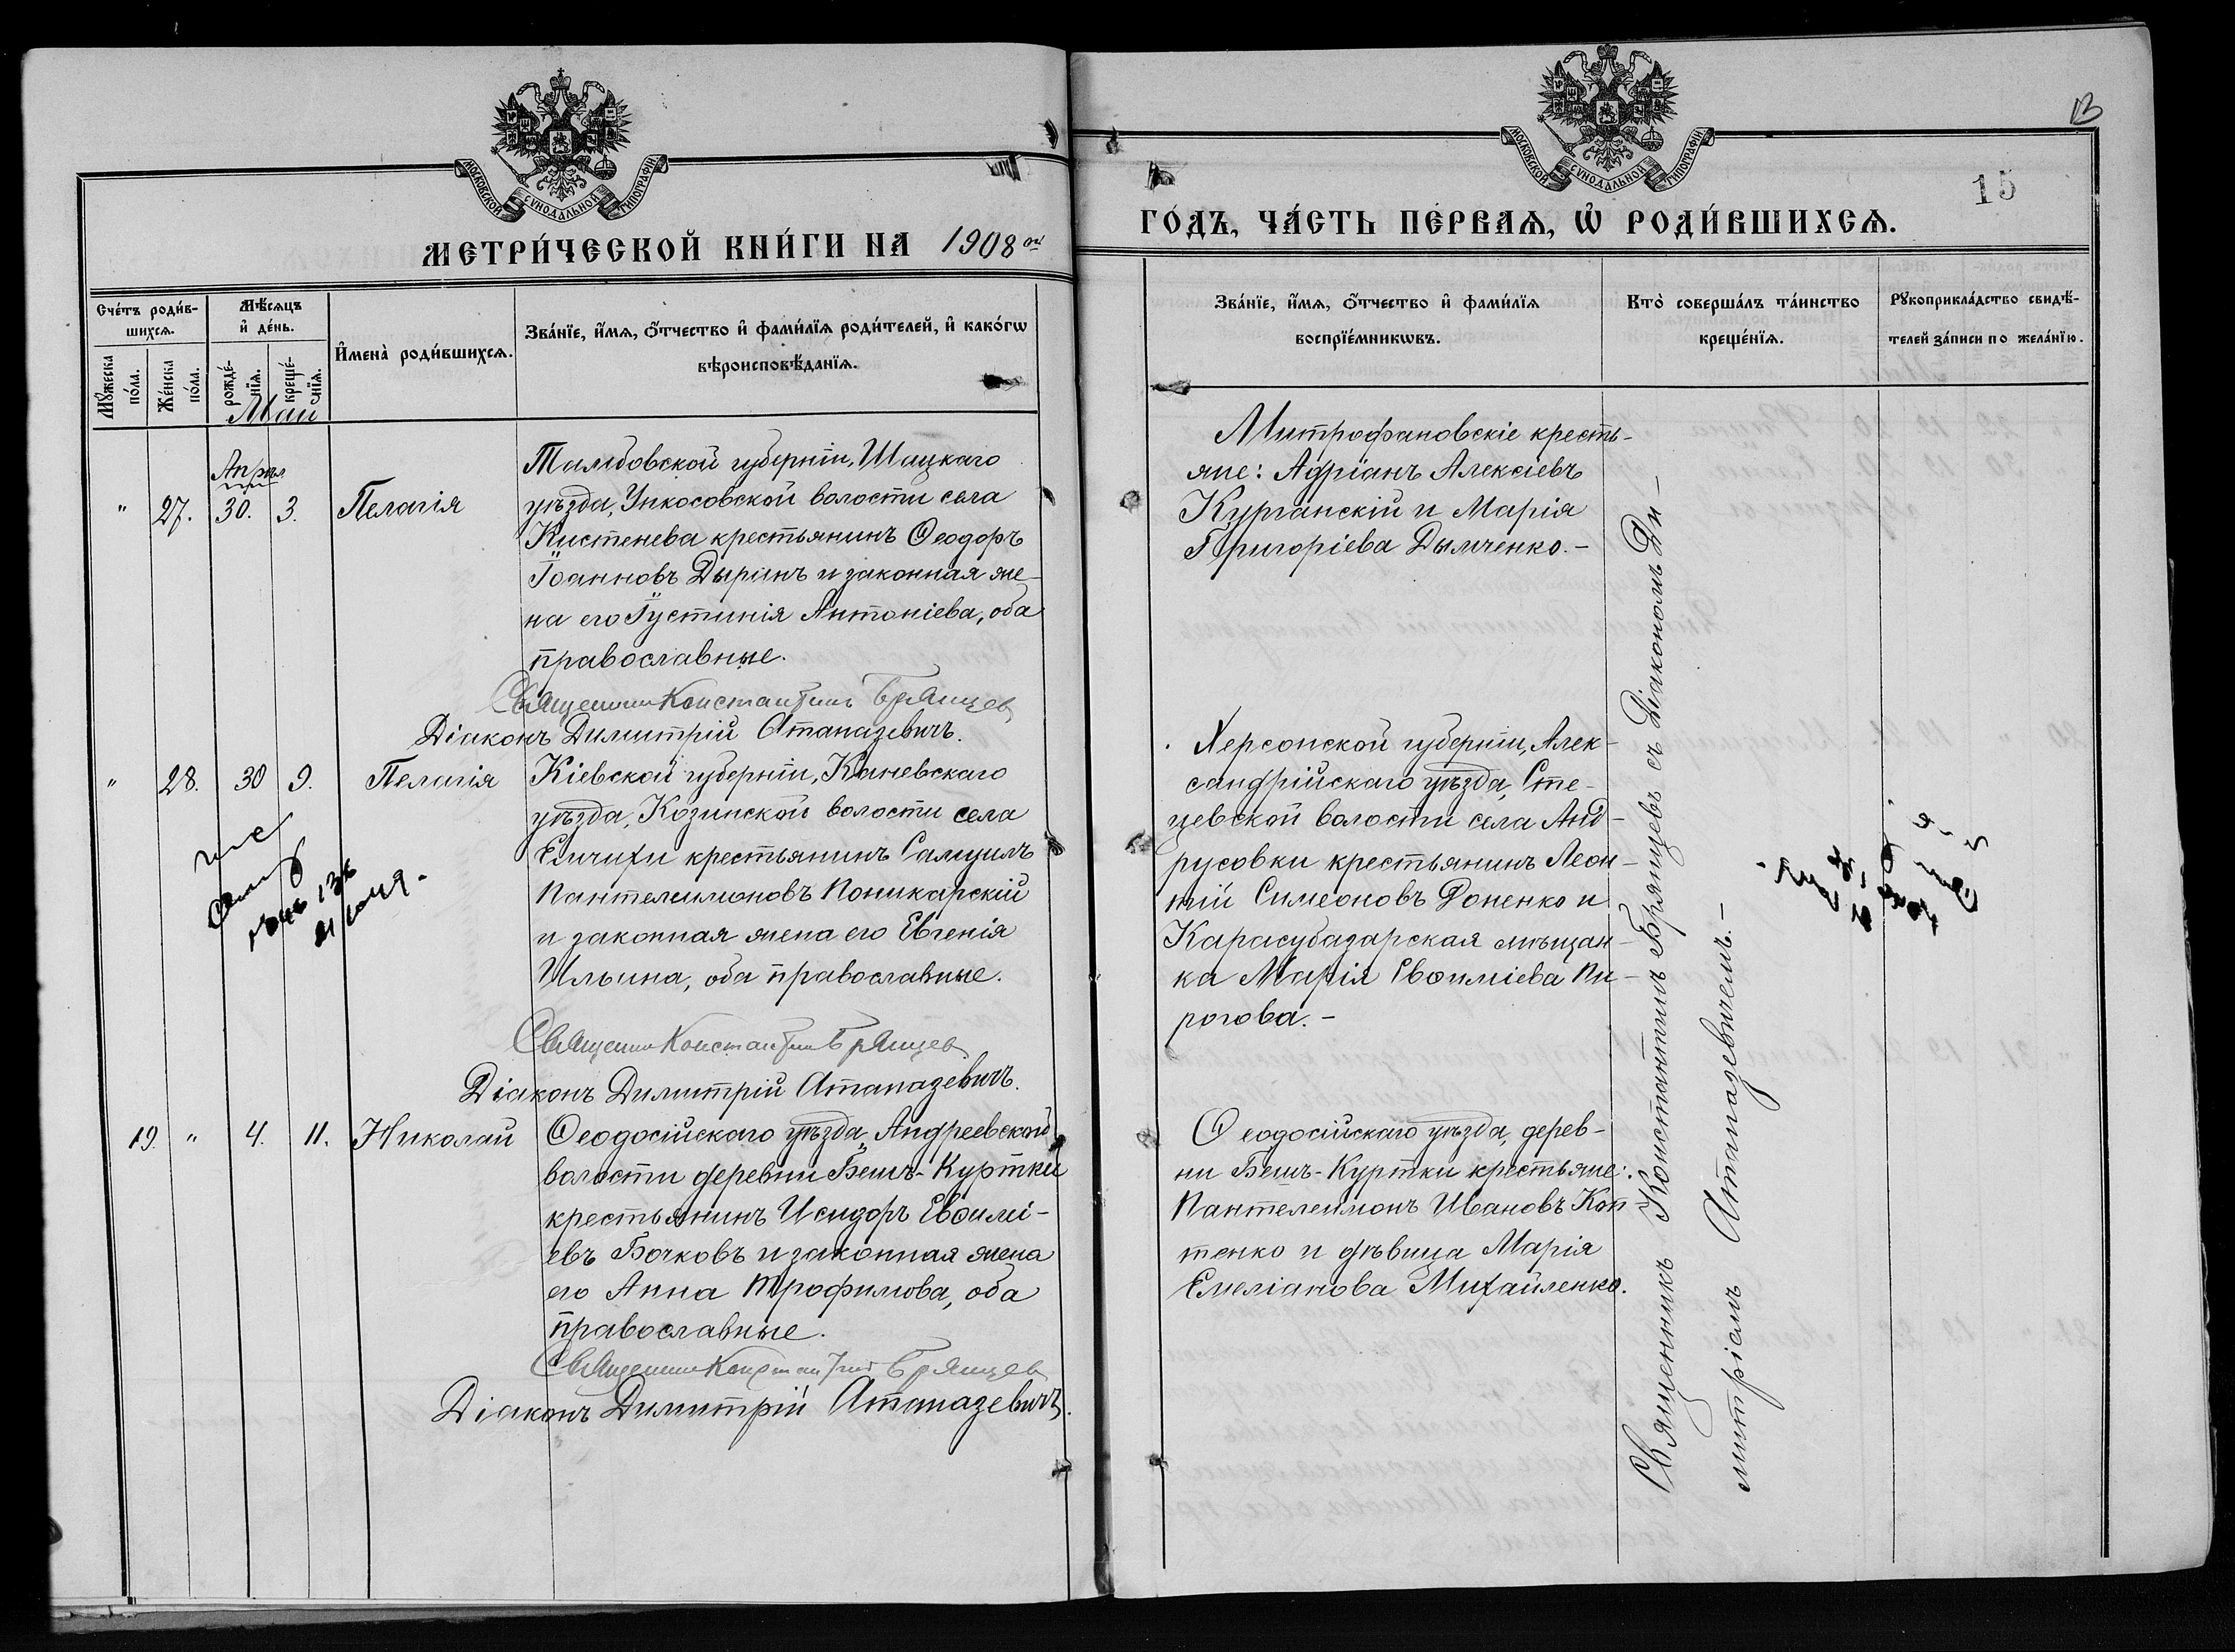 МОСКОВСКОЙ СѴНОДАЛЬНОЙ ТИПОГРАФІИ
МЕТРИ́ЧЕСКОЙ КНИ́ГИ НА 1908 ой
Сче́тъ роди́в-
шихсѧ.
Мѣ́сѧцъ
и҆ де́нь.
Мꙋ́жеска
по́ла.
Же́нска
по́ла.
рожде́-
нїѧ.
креще́-
нїѧ.
И҆мена̀ роди́вшихсѧ.
Зва́нїе, и҆́мѧ, ѻ҆́тчество и҆ фами́лїѧ роди́телей, и҆ како́гѡ
вѣроисповѣ́данїѧ.
Май
Апрѣля
" 27. 30. 3. Пелагія
Тамбовской губерніи, Шацкаго
уѣзда, Ункосовской волости села
Кистенева крестьянинъ Ѳеодоръ
Іоанновъ Дыринъ и законная же-
на его Іустинія Антоніева, оба
православные.
Священникъ Константинъ Брянцев
Діаконъ Димитрій Атаназевичъ.
" 28. 30 9. Пелагія
Кіевской губерніи, Каневскаго
уѣзда, Козинской волости села
Емчихи крестьянинъ Самуилъ
Пантелеимоновъ Поникарскій
и законная жена его Евгенія
Ильина, оба православные.
Священникъ Константинъ Брянцев
Діаконъ Димитрій Атаназевичъ.
19. " 4. 11. Николай
Ѳеодосійскаго уѣзда, Андреевской
волости деревни Бешъ-Куртки
крестьянинъ Исидоръ Евѳимі-
евъ Бочковъ и законная жена
его Анна Трофимова, оба
православные.
Священникъ Константинъ Брянцев
Діаконъ Димитрій Атаназевичъ.
МОСКОВСКОЙ СѴНОДАЛЬНОЙ ТИПОГРАФІИ
13
15
ГО́ДЪ, ЧА́СТЬ ПЕ́РВАѦ, Ѽ РОДИ́ВШИХСѦ.
Зва́нїе, и҆́мѧ, ѻ҆́тчество и҆ фами́лїѧ
воспрїе́мникѡвъ.
Кто̀ соверша́лъ та́инство
креще́нїѧ.
Рꙋкоприкла́дство свидѣ́-
телей за́писи по жела́нїю.
Митрофановскіе кресть-
яне: Адріанъ Алексіевъ
Курганскій и Марія
Григоріева Дымченко.-
Херсонской губерніи, Алек-
сандрійскаго уѣзда, Сте-
цевской волости села Анд-
русовки крестьянинъ Леон-
тій Симеоновъ Доненко и
Карасубазарская мѣщан-
ка Марія Евѳиміева Пи-
рогова.-
Ѳеодосійскаго уѣзда, дерев-
ни Бешъ-Куртки крестьяне:
Пантелеимонъ Ивановъ Коп-
тенко и дѣвица Марія
Емеліанова Михайленко.
Священникъ Константинъ Брянцевъ съ Діакономъ Ди-
митріемъ Атаназевичемъ.-